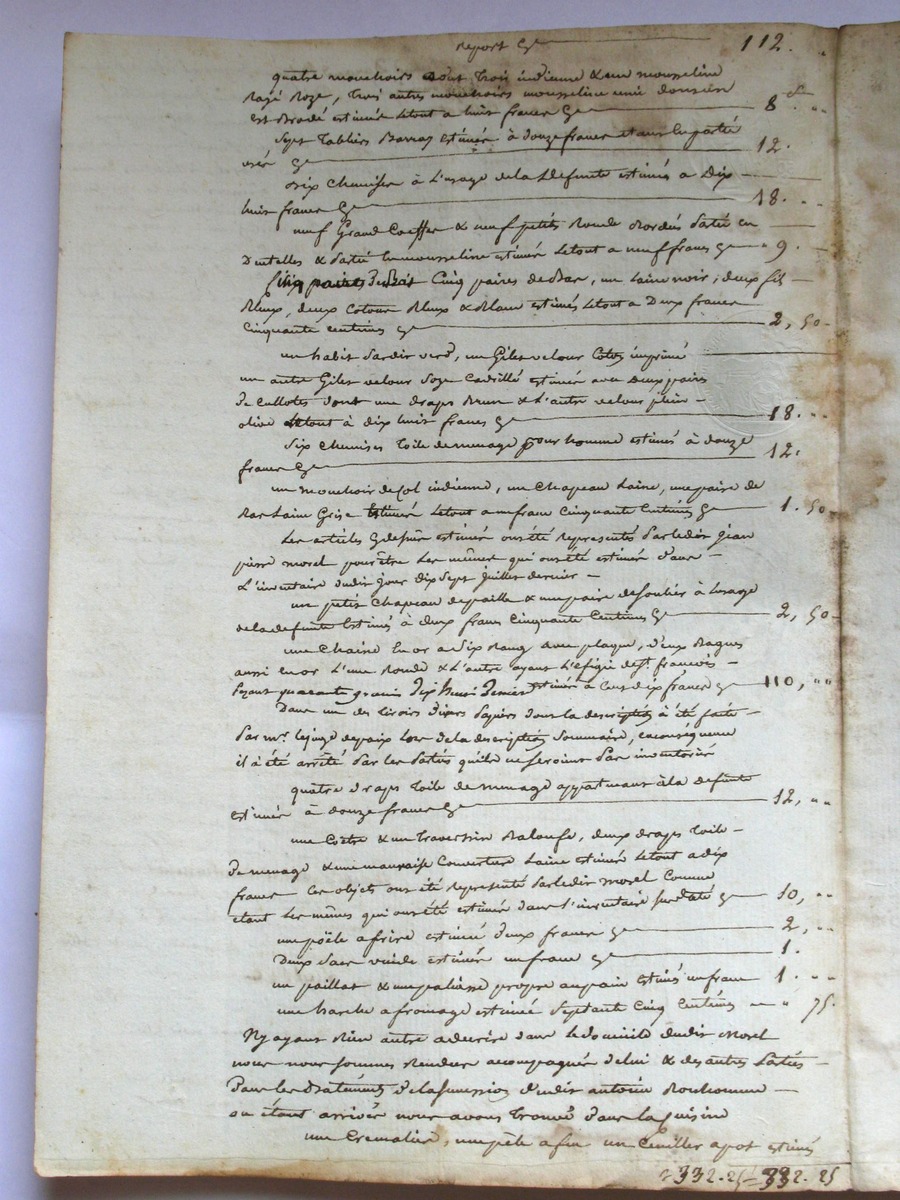 Report Cy 112.
quatre mouchoirs dont trois indienne & un mousseline
Rayé Roze, trois autres mouchoirs mousseline unie
est Brodé estimés letout a huit francs Cy 8
Sept Tabliers estimés à douze francs etant en partie
usés Cy 12.
Six chemises à L'usage de la Defunte estimés a Dix
huit francs Cy 18.
neuf Grand Coeffes & neuf petits Ronde Bordés Partie en
Dentelles & Partie en mousseline estimés Letout a neuf francs Cy 9.
Cinq paires de Bas, un Laine noir, deux fil
Bleux, deux Cotton Bleux & Blanc estimés Letout a Deux francs
Cinquante centimes Cy 2,50
un habit verd, un Gilet velour Coton imprimé
un autre Gilet velour Soye Cadrillé estimés avec Deux paires
de Cullotes dont une draps Brun & L'autre velour plein
olive Letout à dix huit francs Cy 18.
Six Chemises Toile de menage pour homme estimés à douze
francs Cy 12.
un mouchoir de Col indienne, un Chapeau Laine, une paire de
Bas Laine Grise Estimés Letout a un franc Cinquante Centimes Cy 1.50
Les articles Cydessus estimés ont été representés Par ledit jean
pierre morel pour être Les mêmes qui ont été estimés dans
L'inventaire dudit jour Dix Sept juillet dernier
un petit Chapeau de paille & une paire de Soulier à L'usage
de la defunte Estimés à deux francs Cinquante Centimes Cy 2,50
une Chaine En or a Six Rang avec plaque, deux Bagues
aussi En or L'une Ronde & L'autre ayant L'efigie de St. francois
Pesant quarante grains Dix huit Deniers estimés à Cent dix francs Cy 110,""
Dans un des tiroirs divers Papiers dont la description à été faite
Par Mr. le juge de paix Lors de la description Sommaire, en consequence
il à été arrêté Par les Parties qu'ils ne seroient Pas inventoriés
quatre draps Toile de menage appartenant à la defunte
estimés à douze francs Cy 12,""
une Coëtre & un Traversin Baloufe, deux draps Toile
de menage & une mauvaise Couverture Laine estimés Letout a dix
francs Ces objets ont été representé Par ledit morel Comme
etant Les mêmes qui ont été estimés dans L'inventaire Cy 10,""
une poële a frire estimée deux francs Cy 2,""
Deux Sacs vuide estimés un franc Cy 1.
un paillat & une paliasse propre au pain estimés un franc 1.""
une à fromage estimée Septante Cinq Centimes " 75.
N'y ayant Rien autre a decrire dans le domicile dudit Morel
nous nous sommes Rendus accompagnés de lui & des autres Parties
Dans les Batiments de la Succession dudit antoine Bonhomme
ou étant arrivés nous avons trouvé dans la Cuisine
une Cremaliere, une pèle a feu un Cuiller a pot estimés
332.25 332.25